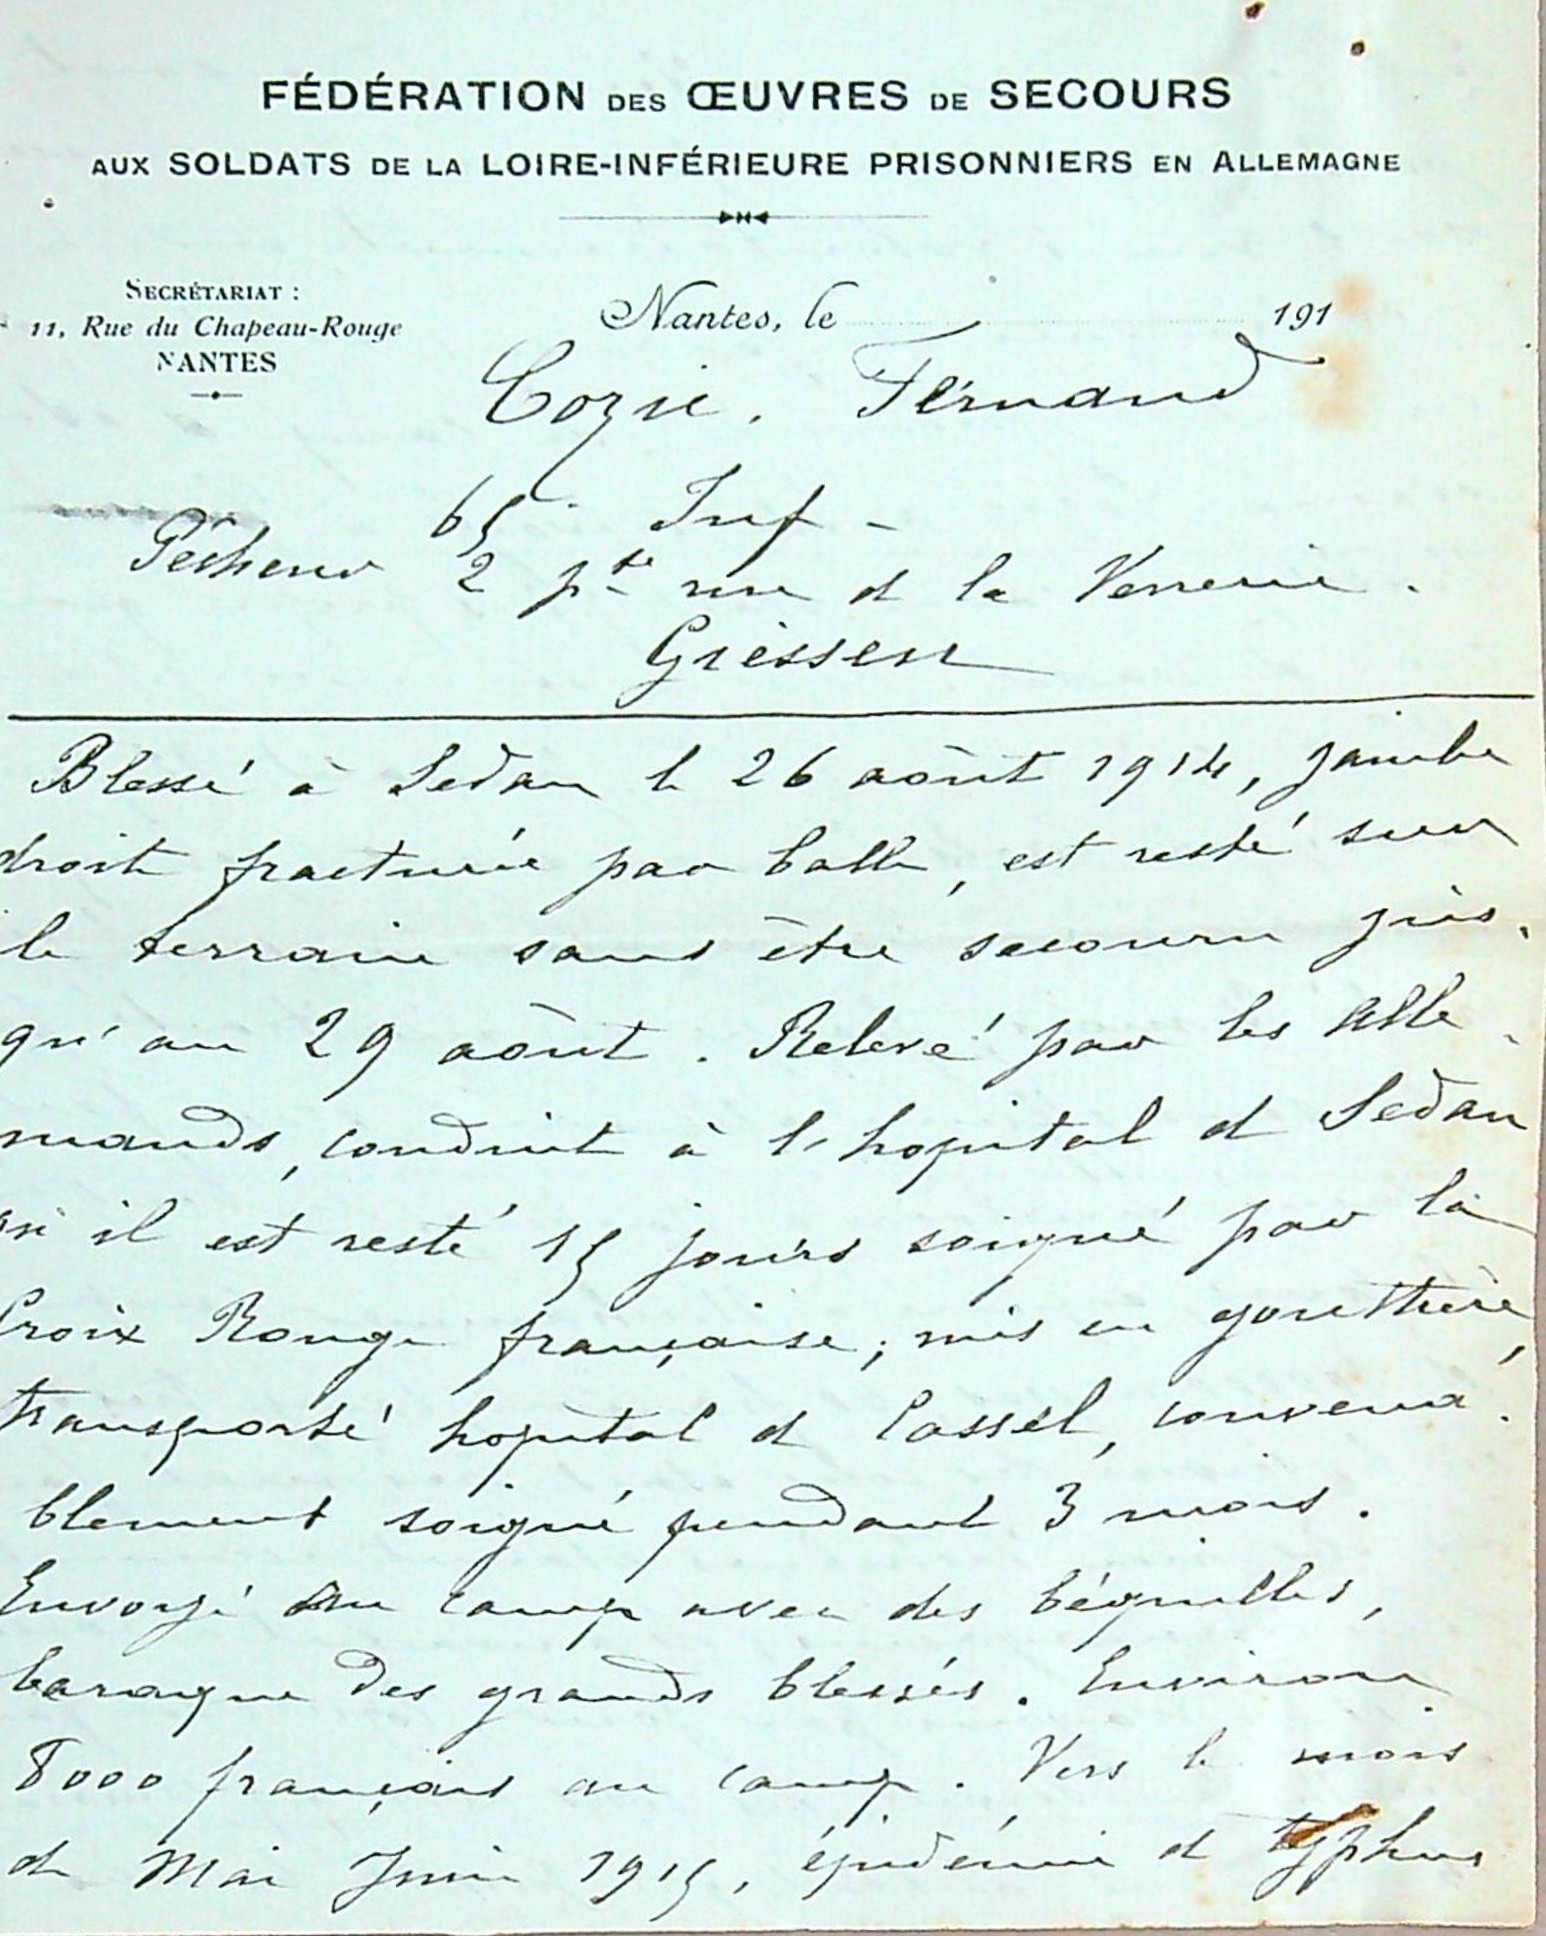 FÉDÉRATION DES ŒUVRES DE SECOURS
AUX SOLDATS DE LA LOIRE-INFÉRIEURE PRISONNIERS EN ALLEMAGNE
SECRÉTARIAT :
11, Rue du Chapeau-Rouge
NANTES
Nantes, le 191
Cozic. Fernand
65 Inf -
Pêcheur 2 pte rue de la Verrerie.
Giessen
Blessé à Sedan le 26 août 1914, jambe
droite fracturée par balle, est resté sur
le terrain sans être secouru jus-
qu'au 29 août. Relevé par les Alle-
mands, conduit à l'hopital de Sedan
où il est resté 15 jours soigné par la
Croix Rouge française; mis en gouttière,
transporté hopital de Cassel, convena-
blement soigné pendant 3 mois.
Envoyé au camp avec des béquilles,
baraque des grands blessés. Environ
8000 français au camp. Vers le mois
de Mai Juin 1915, épidémie de typhus